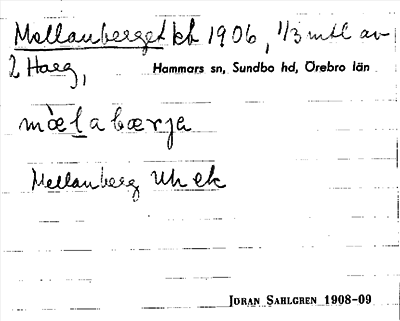 Mellanberget kb 1906, 1/3 mtl av
2 Haeg,
Hammars sn, Sundbo hd, Örebro län
mæ̀l a bærja
Mellanberg Uh ek
JÖRAN SAHLGREN 1908-09